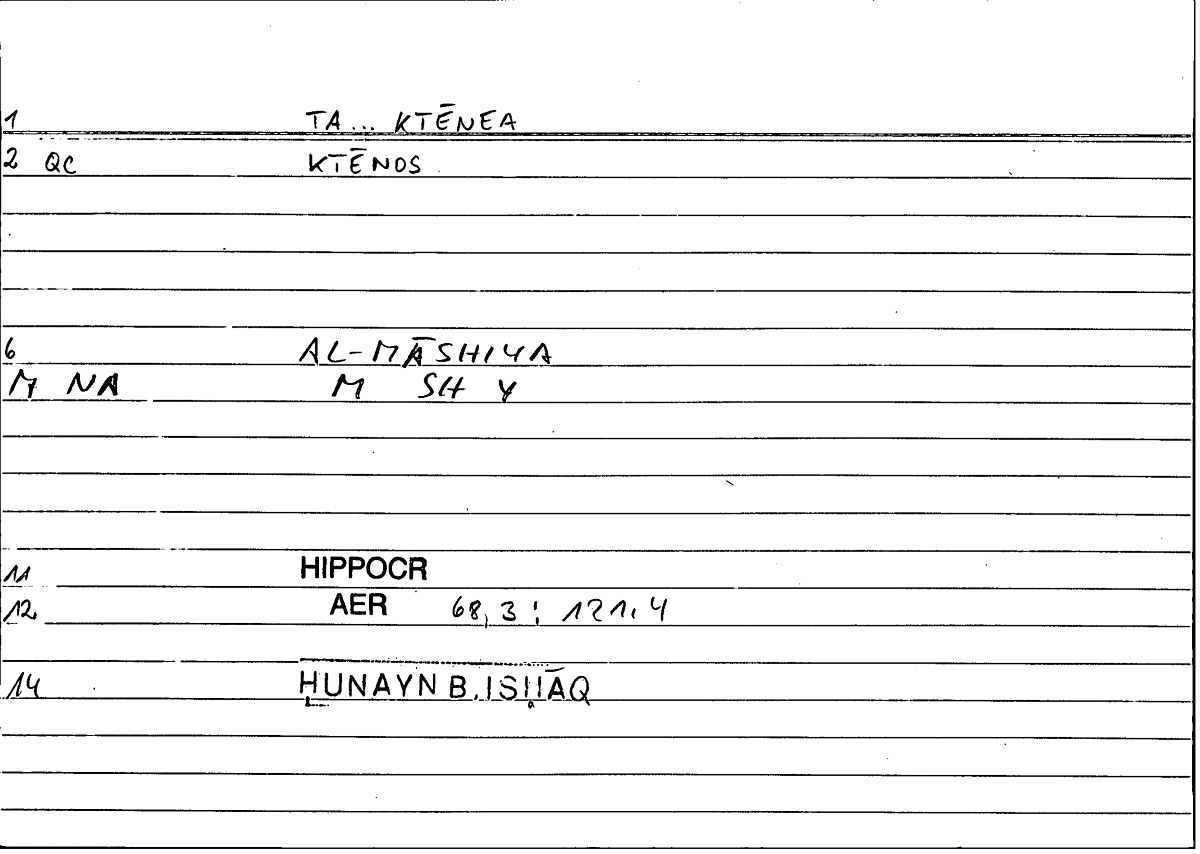 1 TA... KTĒNEA
2 QC KTĒNOS
6 AL-MĀSHIYA
M NA M SH Y
11 HIPPOCR
12 AER 68,3; 121,4
14 ḤUNAYN B. ISḤĀQ